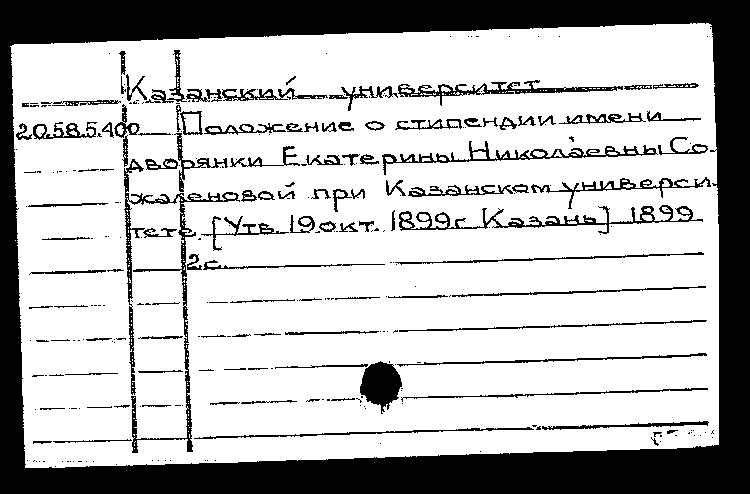 Казанский университет
20.58.5.400 Положение о стипендии имени
дворянки Екатерины Николаевны Со-
жаленовой при Казанском универси-
тете. [Утв. 19 окт. 1899 г. Казань] 1899
2 с.